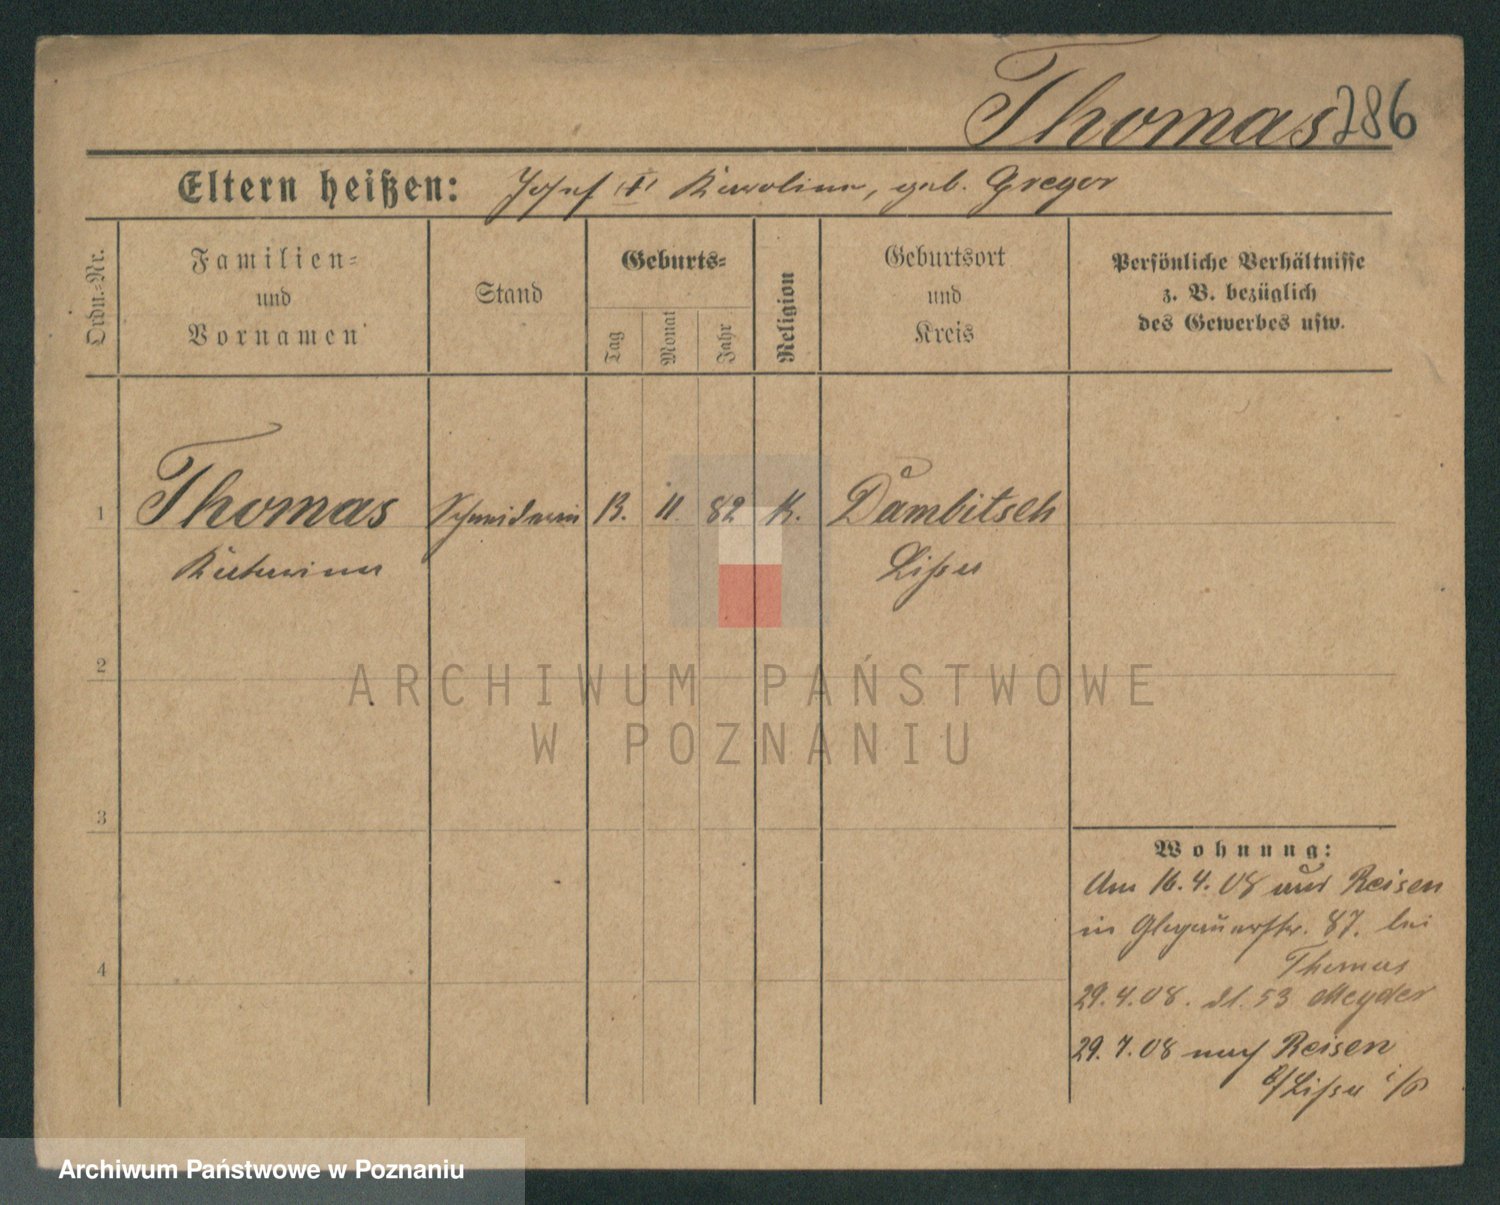 Thomas 286
Eltern heißen: Josef (†) Karoline, geb. Gregor
Ordn.-Nr.
Familien-
und
Vornamen
Stand
Geburts-
Tag
Monat
Jahr
Religion
Geburtsort
und
Kreis
Persönliche Verhältnisse
z. B. bezüglich
des Gewerbes usw.
1 Thomas Schneiderin 13. 11. 82 K. Dambitsch
Katharina Lissa
2
3
4
Wohnung:
Am 16.4.08 aus Reisen
in Glogauerstr. 87. bei
Thomas
29.4.08. 53 Meyder
29.7.08 nach Reisen
b/Lissa i/P
ARCHIWUM PAŃSTWOWE
W POZNANIU
Archiwum Państwowe w Poznaniu